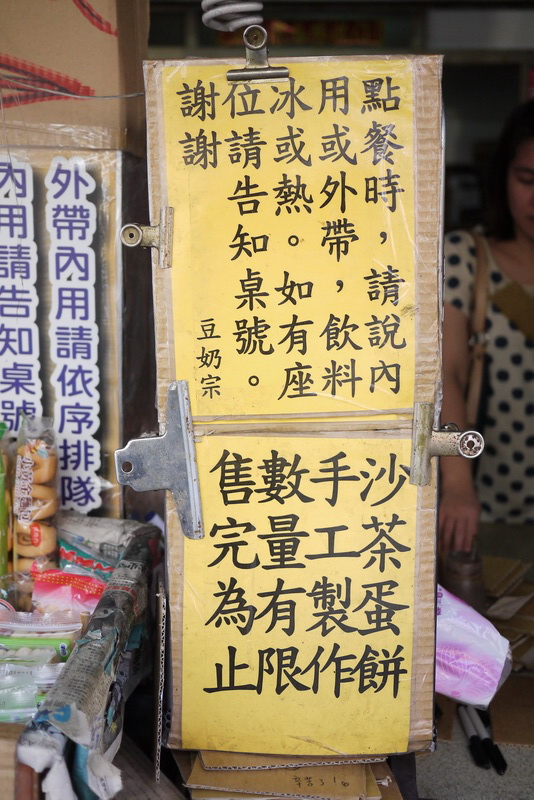 點餐時，請說內
用或外帶，飲料
冰或熱。如有座
位請告知桌號。
謝謝
豆奶宗
沙茶蛋餅
手工製作
數量有限
售完為止
外帶內用請依序排隊
內用請告知桌號